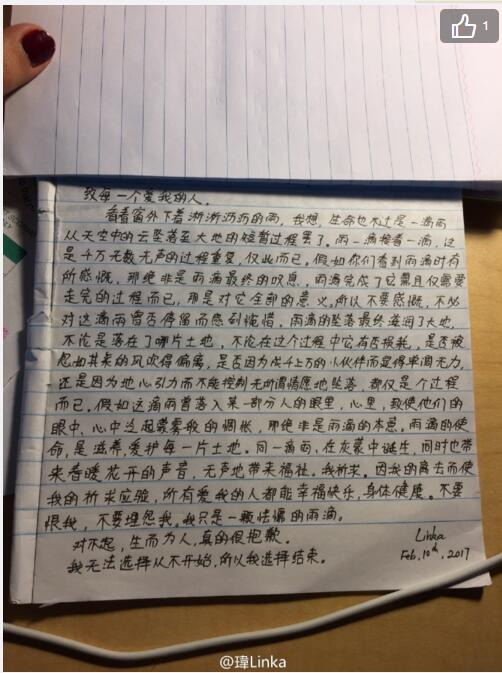 1
致每一个爱我的人,
看着窗外下着淅淅沥沥的雨, 我想, 生命也不过是一滴雨
从天空中的云坠落至大地的短暂过程罢了。雨一滴接着一滴, 这
是千万无数无声的过程重复, 仅此而已, 假如你们看到雨滴时有
所感慨, 那绝非是雨滴最终的叹息, 雨滴完成了它需且仅需要
走完的过程而已, 那是对它全部的意义。所以不要感慨, 不必
对这滴雨曾否停留而感到惋惜, 雨滴的坠落最终滋润了大地,
不论是落在了哪片土地, 不论在这个过程中它有否损耗, 是否被
忽如其来的风吹得偏离, 是否因为成千上万的小伙伴而显得单调无力,
还是因为地心引力而不能控制无所谓情愿地坠落, 都仅是个过程
而已, 假如这滴雨曾落入某一部分人的眼里, 心里, 致使他们的
眼中、心中泛起蒙蒙我的惆怅, 那绝非是雨滴的本意。雨滴的使
命, 是滋养, 爱护每一片土地。同一滴雨, 在灰蒙中诞生, 同时也带
来春暖花开的声音, 无声地带来福祉。我祈求。因我的离去而使
我的祈求应验, 所有爱我的人都能幸福快乐, 身体健康。不要
恨我, 不要埋怨我, 我只是一颗怯懦的雨滴。
对不起, 生而为人, 真的很抱歉。
我无法选择从不开始, 所以我选择结束。
Linka
Feb, 10th, 2017
@瑋Linka